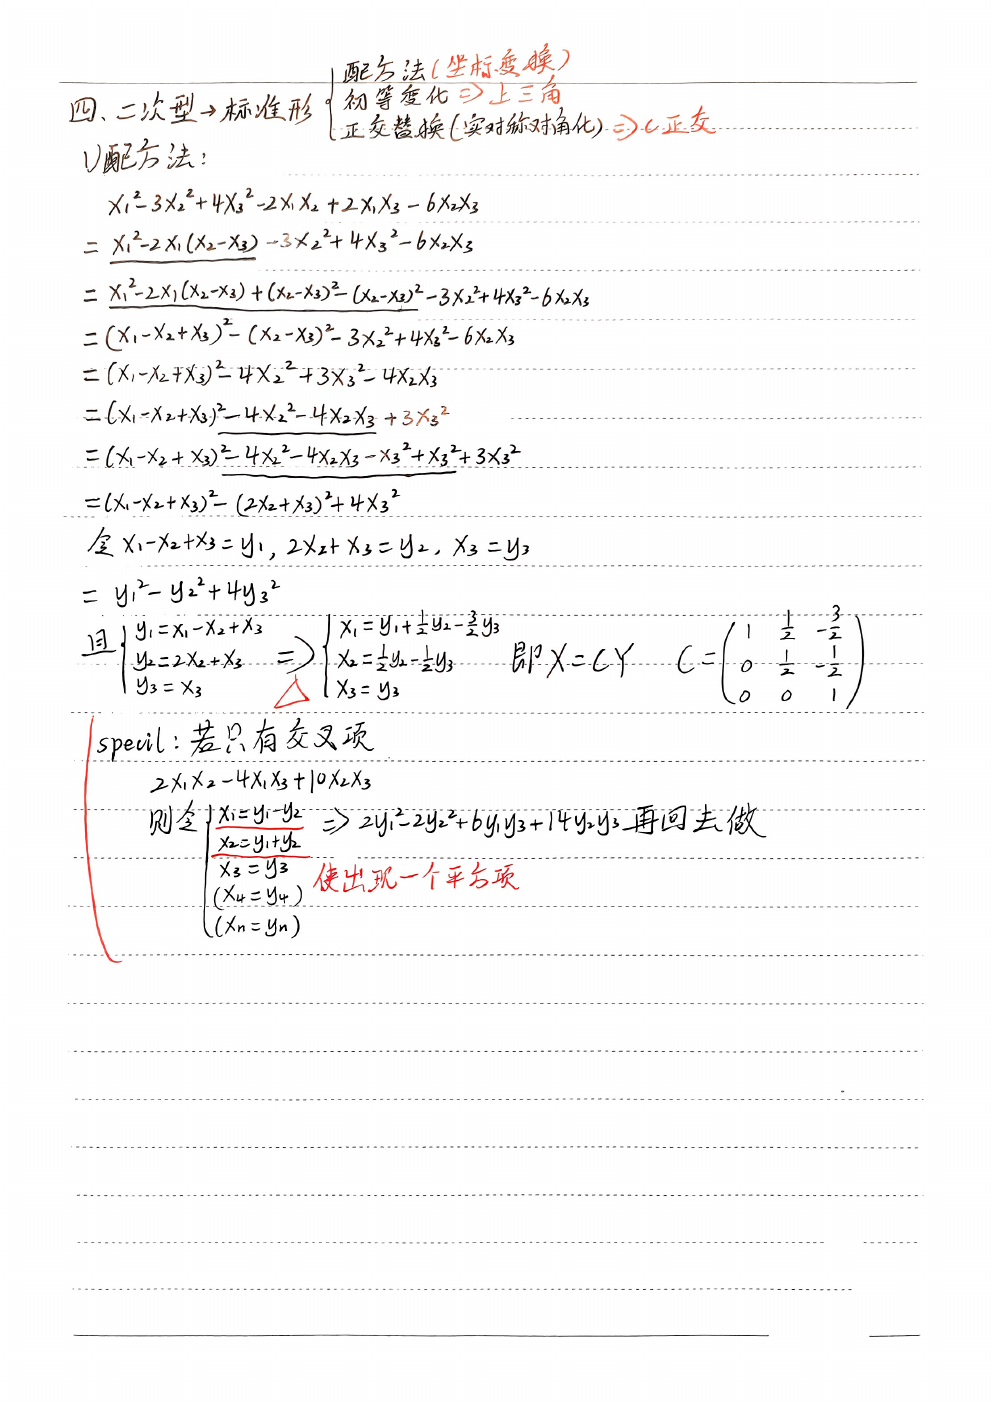 配方法(坐标变换)
四、二次型→标准形 初等变化 => 上三角
正交替换(实对称对角化) => C正交
1)配方法：
x₁²-3x₂²+4x₃²-2x₁x₂+2x₁x₃-6x₂x₃
= x₁²-2x₁(x₂-x₃)-3x₂²+4x₃²-6x₂x₃
= x₁²-2x₁(x₂-x₃)+(x₂-x₃)²-(x₂-x₃)²-3x₂²+4x₃²-6x₂x₃
=(x₁-x₂+x₃)²-(x₂-x₃)²-3x₂²+4x₃²-6x₂x₃
=(x₁-x₂+x₃)²-4x₂²+3x₃²-4x₂x₃
=(x₁-x₂+x₃)²-4x₂²-4x₂x₃+3x₃²
=(x₁-x₂+x₃)²-4x₂²-4x₂x₃-x₃²+x₃²+3x₃²
=(x₁-x₂+x₃)²-(2x₂+x₃)²+4x₃²
令 x₁-x₂+x₃=y₁, 2x₂+x₃=y₂, x₃=y₃
= y₁²-y₂²+4y₃²
y₁=x₁-x₂+x₃ x₁=y₁+½y₂-3/2y₃ 1 ½ -3/2
且 y₂=2x₂+x₃ => x₂=½y₂-½y₃ 即X=CY C= 0 ½ -½
y₃=x₃ x₃=y₃ 0 0 1
specil：若只有交叉项
2x₁x₂-4x₁x₃+10x₂x₃
则令 x₁=y₁-y₂ => 2y₁²-2y₂²+6y₁y₃+14y₂y₃ 再回去做
x₂=y₁+y₂
x₃=y₃ 使出现一个平方项
(x₄=y₄)
(xₙ=yₙ)